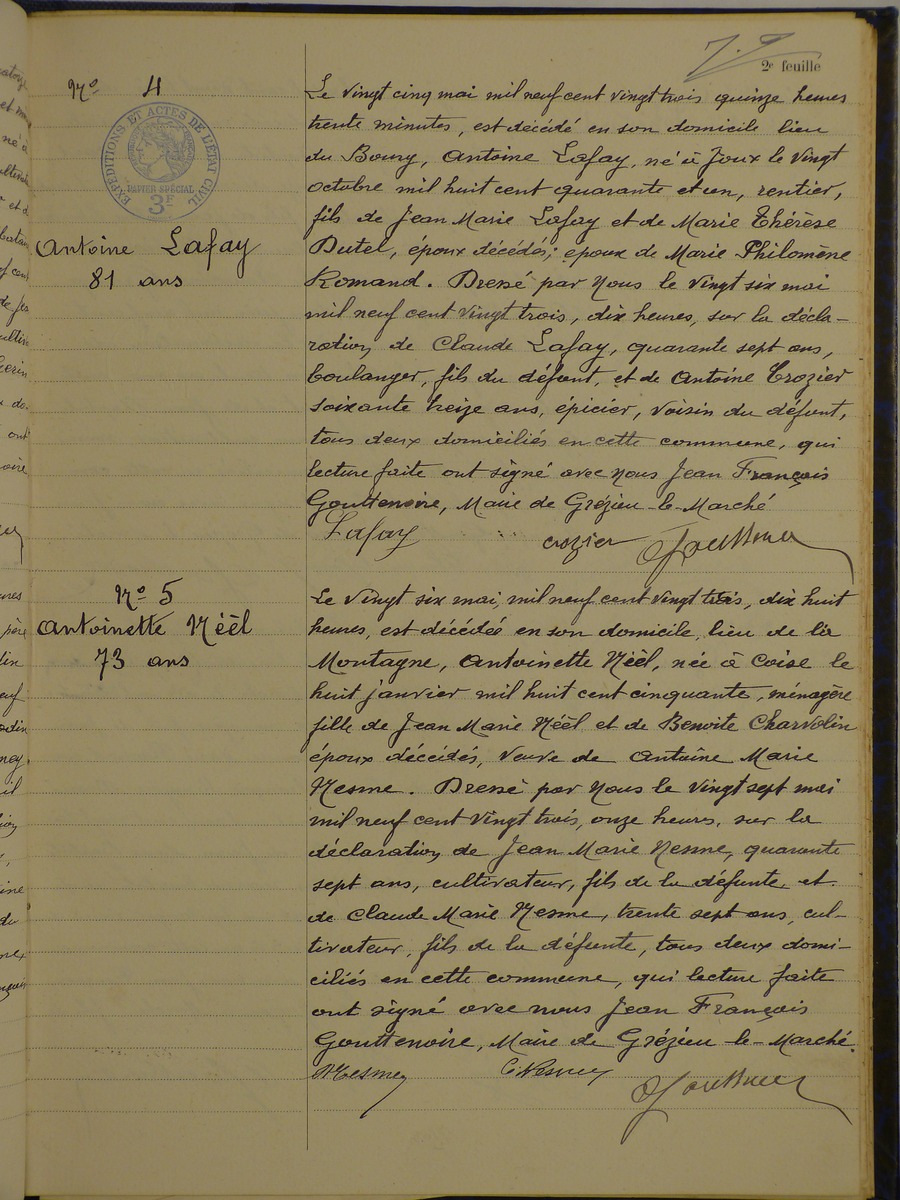 2e feuille
No 4
EXPEDITIONS ET ACTES DE L'ETAT CIVIL
PAPIER SPÉCIAL
3F
Antoine Lafay
81 ans
Le vingt cinq mai mil neuf cent vingt trois quinze heures
trente minutes, est décédé en son domicile lieu
du Bourg, Antoine Lafay, né à Joux le vingt
octobre mil huit cent quarante et un, rentier,
fils de Jean Marie Lafay et de Marie Thérèse
Dutel, époux décédés; époux de Marie Philomène
Romand. Dressé par Nous le vingt six mai
mil neuf cent vingt trois, dix heures, sur la décla-
ration de Claude Lafay, quarante sept ans,
boulanger, fils du défunt, et de Antoine Crozier
soixante treize ans, épicier, voisin du défunt,
tous deux domiciliés en cette commune, qui
lecture faite ont signé avec nous Jean François
Gouttenoire, Maire de Grézieu-le-Marché
Lafay crozier
No 5
Antoinette Néel
73 ans
Le vingt six mai, mil neuf cent vingt trois, dix huit
heures, est décédée en son domicile, lieu de la
Montagne, Antoinette Néel, née à Coise le
huit janvier mil huit cent cinquante, ménagère
fille de Jean Marie Néel et de Benoite Charvolin
époux décédés, veuve de Antoine Marie
Nesme. Dressé par Nous le vingt sept mai
mil neuf cent vingt trois, onze heures, sur la
déclaration de Jean Marie Nesme, quarante
sept ans, cultivateur, fils de la défunte, et
de Claude Marie Nesme, trente sept ans, cul-
tivateur, fils de la défunte, tous deux domi-
ciliés en cette commune, qui lecture faite
ont signé avec nous Jean François
Gouttenoire, Maire de Grézieu-le-Marché.